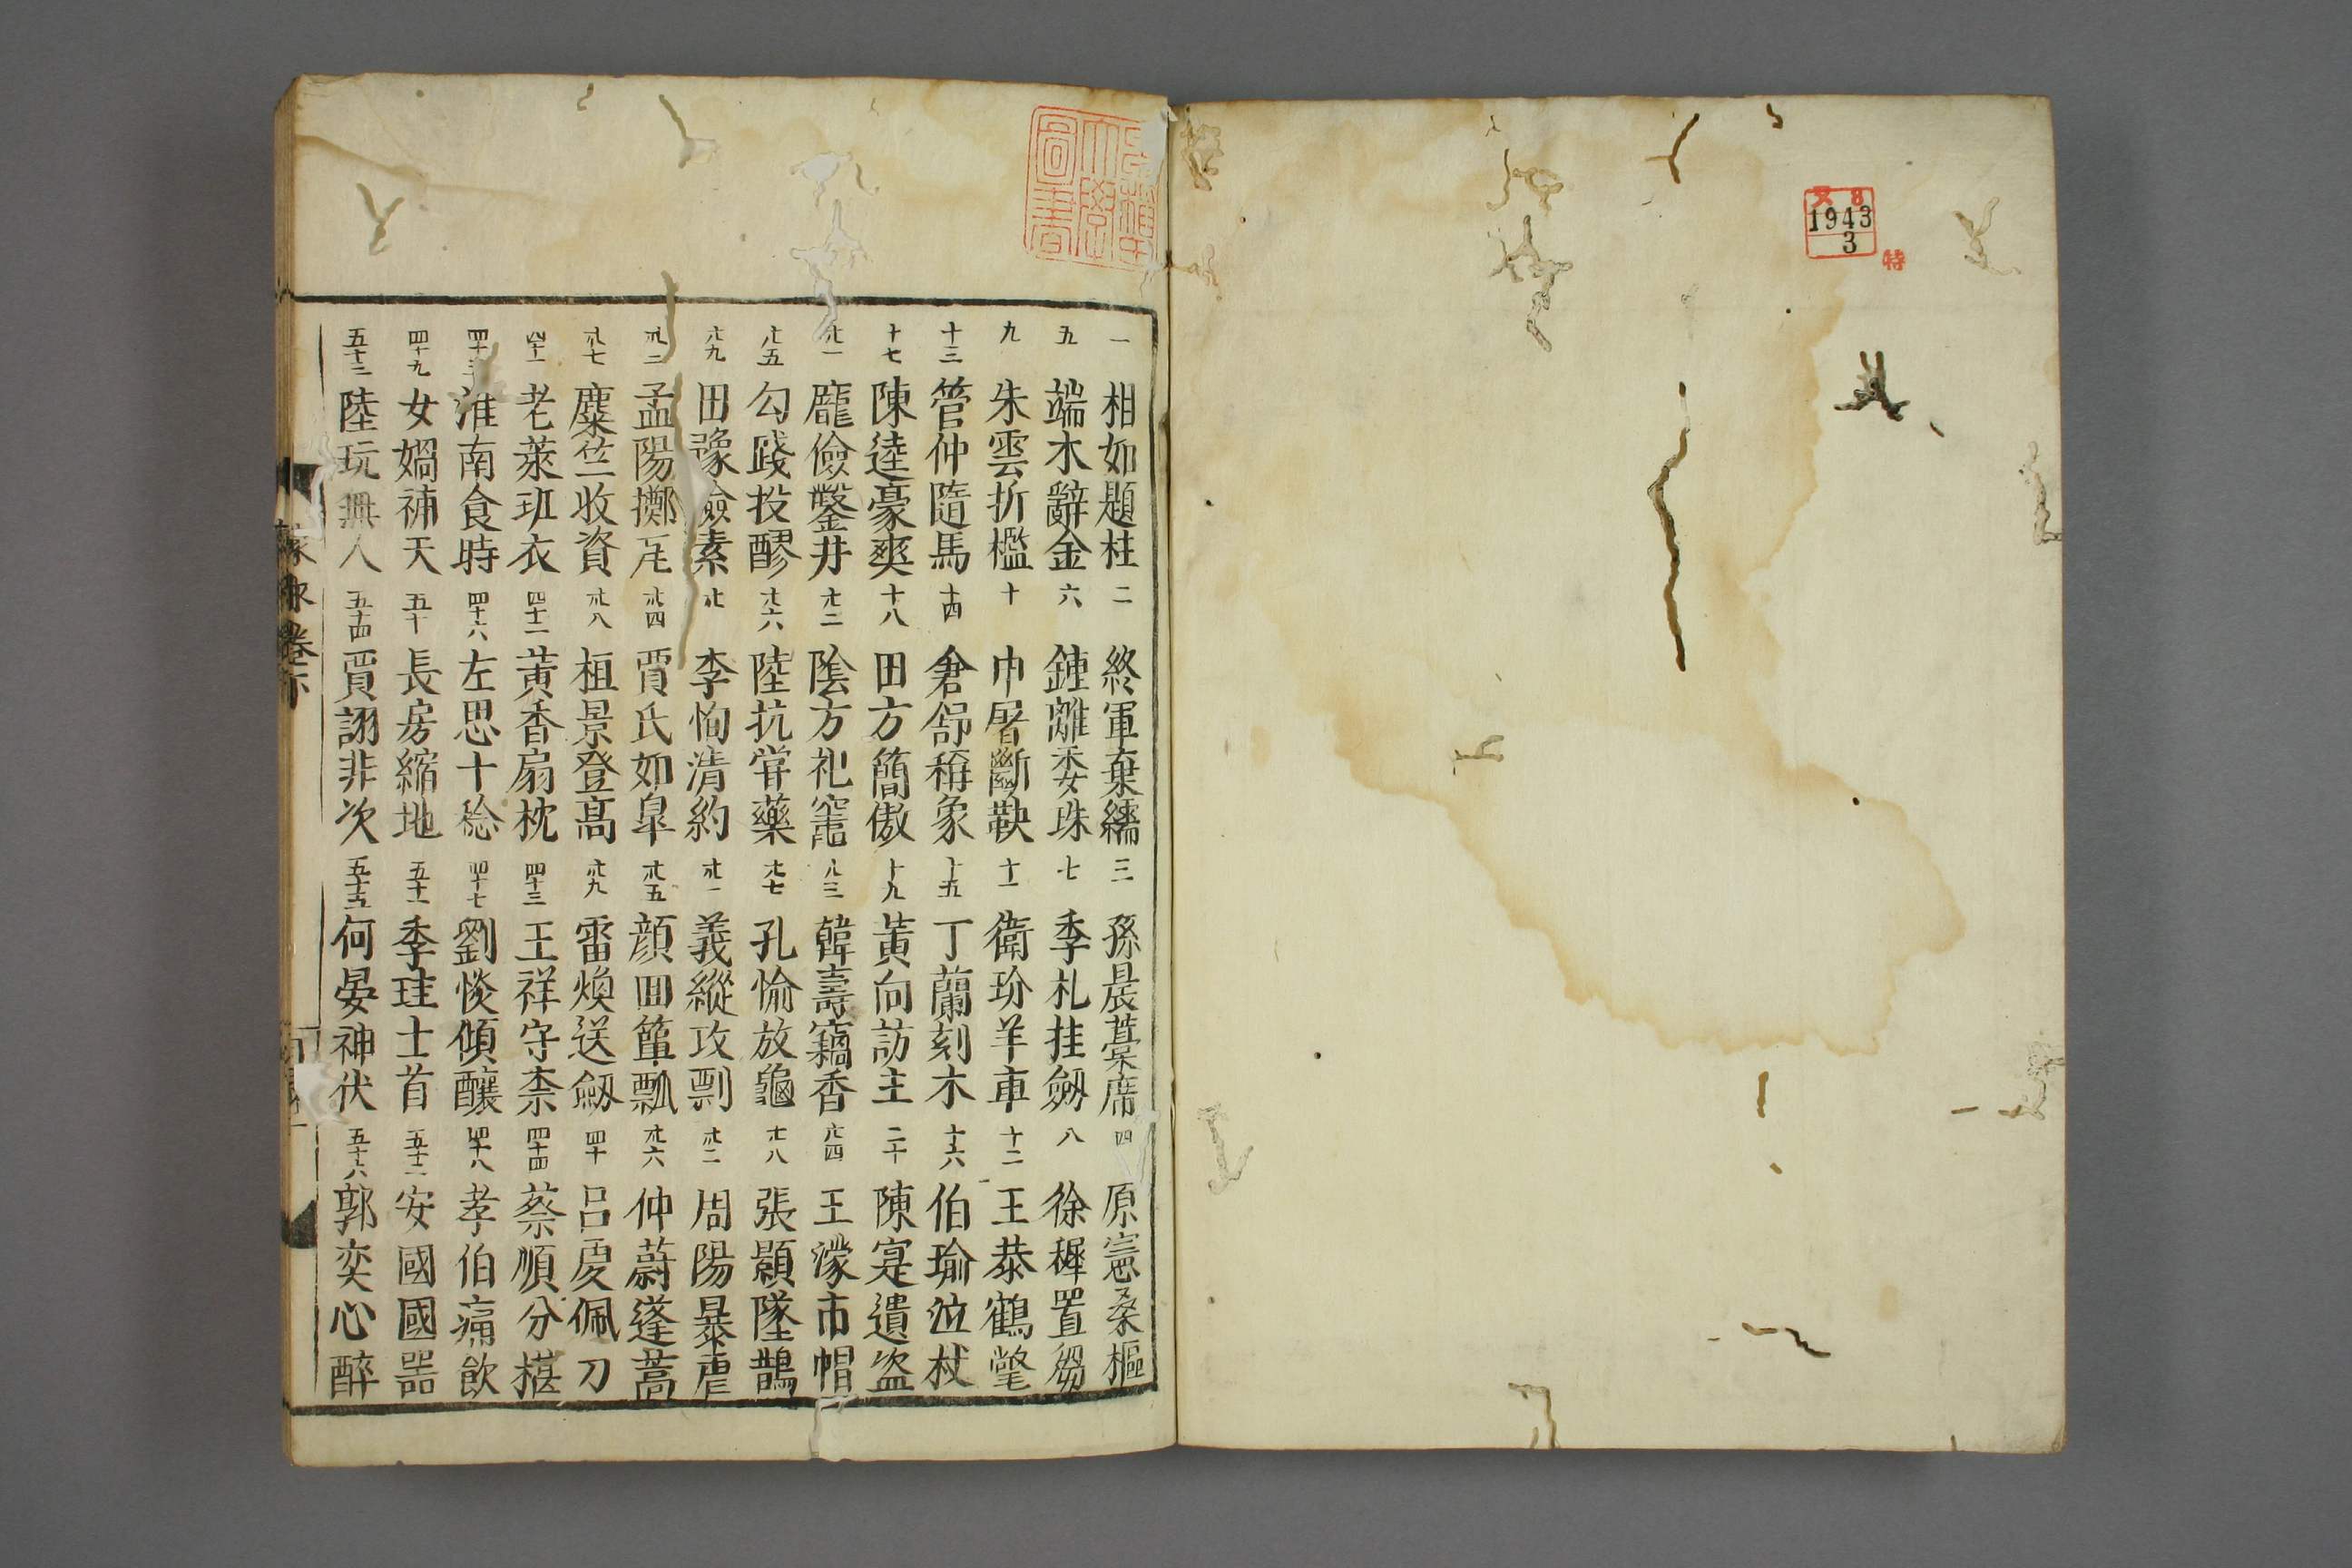 文8
1943
3
特
早稲田大學圖書
一 相如題柱 二 終軍棄繻 三 孫晨藁席 四 原憲桑樞
五 端木辭金 六 鍾離委珠 七 季札挂劒 八 徐穉置芻
九 朱雲折檻 十 申屠斷鞅 十一 衛玠羊車 十二 王恭鶴氅
十三 管仲隨馬 十四 倉舒稱象 十五 丁蘭刻木 十六 伯瑜泣杖
十七 陳逵豪爽 十八 田方簡傲 十九 黃向訪主 二十 陳寔遺盜
廿一 龐儉鑿井 廿二 陰方祀竈 廿三 韓壽竊香 廿四 王濛市帽
廿五 勾踐投醪 廿六 陸抗甞藥 廿七 孔愉放龜 廿八 張顥墜鵲
廿九 田豫儉素 卅 李恂清約 卅一 義縱攻剽 卅二 周陽暴虐
卅三 孟陽擲瓦 卅四 賈氏如皐 卅五 顔囬簞瓢 卅六 仲蔚蓬蒿
卅七 麋竺收資 卅八 桓景登高 卅九 雷煥送劒 四十 呂虔佩刀
四十一 老萊班衣 四十二 黃香扇枕 四十三 王祥守柰 四十四 蔡順分椹
四十五 淮南食時 四十六 左思十稔 四十七 劉惔傾釀 四十八 孝伯痛飲
四十九 女媧補天 五十 長房縮地 五十一 季珪士首 五十二 安國國噐
五十三 陸玩無人 五十四 賈詡非次 五十五 何晏神伏 五十六 郭奕心醉
蒙求卷下